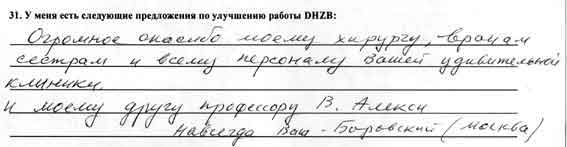 31. У меня есть следующие предложения по улучшению работы DHZB:
Огромное спасибо моему хирургу, врачам
сестрам и всему персоналу Вашей удивительной
клиники.
и моему другу профессору В. Алекси
Навсегда Ваш - Боровский (Москва)